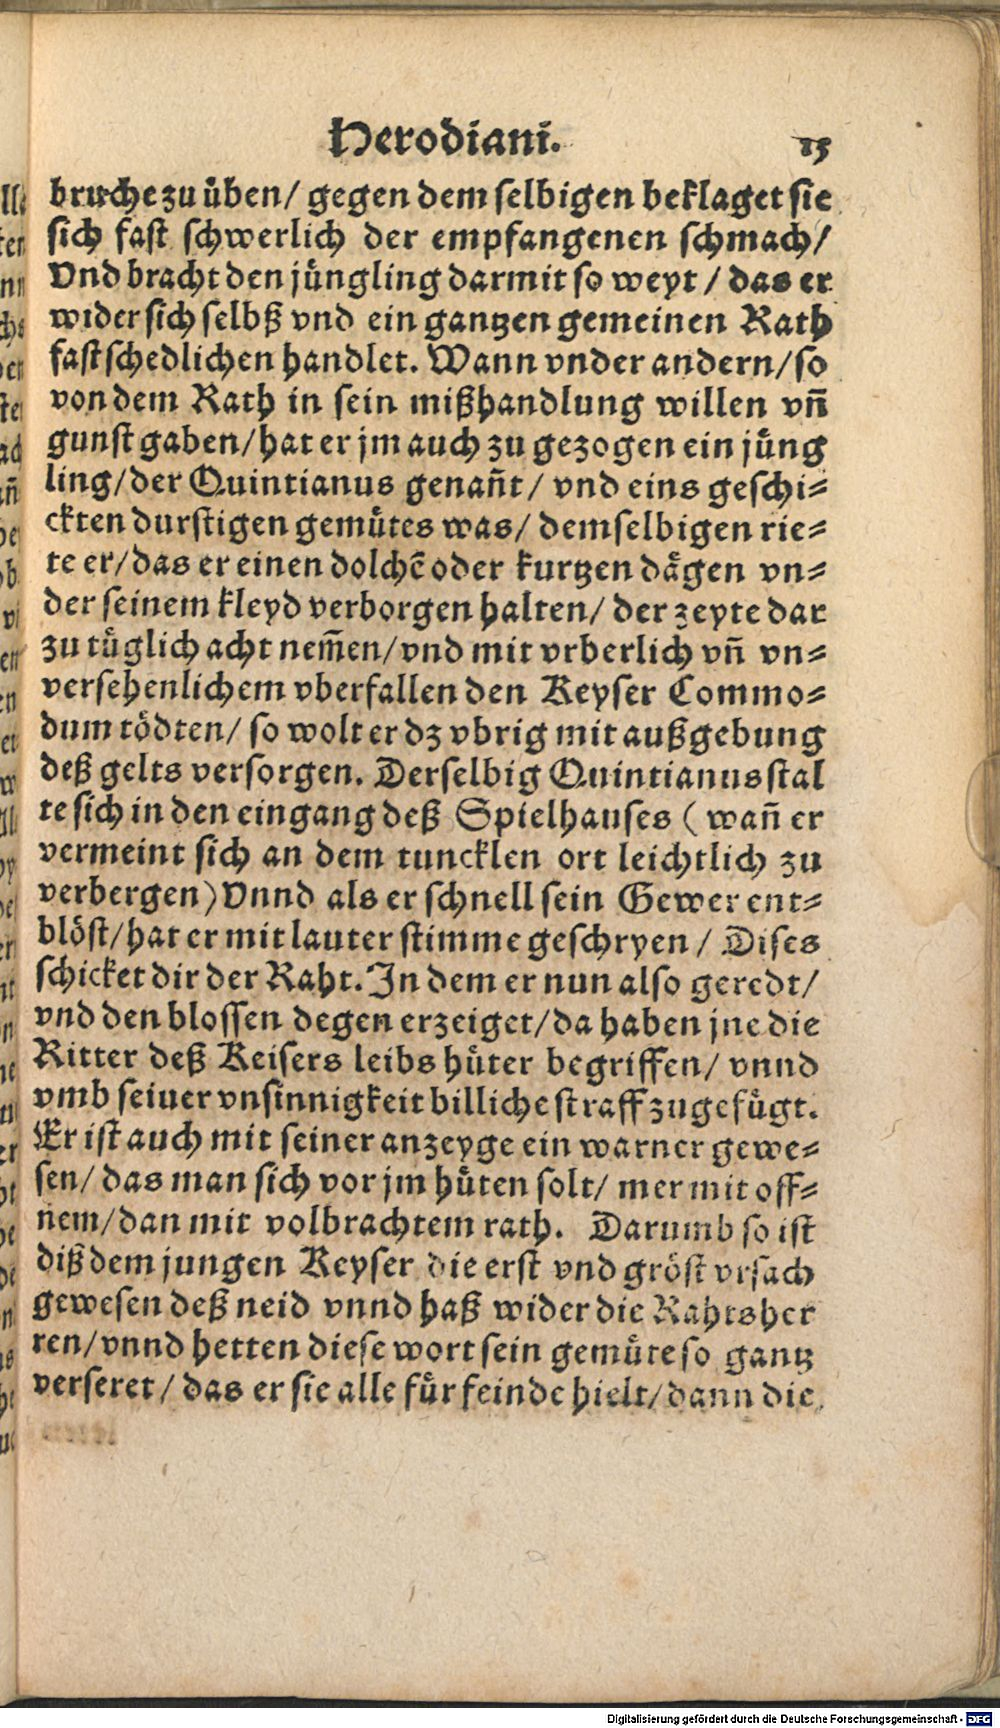 Herodiani. 15
bruche zu üben/ gegen dem selbigen beklaget sie
sich fast schwerlich der empfangenen schmach/
Vnd bracht den jüngling darmit so weyt / das er
wider sich selbß vnd ein gantzen gemeinen Rath
fast schedlichen handlet. Wann vnder andern/ so
von dem Rath in sein mißhandlung willen vn̄
gunst gaben/ hat er jm auch zu gezogen ein jüng
ling/ der Quintianus genan̄t/ vnd eins geschi-
ckten durstigen gemütes was/ demselbigen rie-
te er/ das er einen dolchē oder kurtzen dägen vn-
der seinem kleyd verborgen halten/ der zeyte dar
zu tüglich acht nem̄en/ vnd mit vrberlich vn̄ vn-
versehenlichem vberfallen den Keyser Commo-
dum tödten/ so wolt er dz vbrig mit außgebung
deß gelts versorgen. Derselbig Quintianus stal
te sich in den eingang deß Spielhauses ( wan̄ er
vermeint sich an dem tuncklen ort leichtlich zu
verbergen) Vnnd als er schnell sein Gewer ent-
blöst/ hat er mit lauter stimme geschryen/ Dises
schicket dir der Raht. In dem er nun also geredt/
vnd den blossen degen erzeiget/ da haben jne die
Ritter deß Keisers leibs hüter begriffen/ vnnd
vmb seiuer vnsinnigkeit billiche straff zugefügt.
Er ist auch mit seiner anzeyge ein warner gewe-
sen/ das man sich vor jm hüten solt/ mer mit off-
nem/ dan mit volbrachtem rath. Darumb so ist
diß dem jungen Keyser die erst vnd gröst vrsach
gewesen deß neid vnnd haß wider die Rahtsher
ren/ vnnd hetten diese wort sein gemüte so gantz
verseret/ das er sie alle für feinde hielt/ dann die
Digitalisierung gefördert durch die Deutsche Forschungsgemeinschaft - DFG